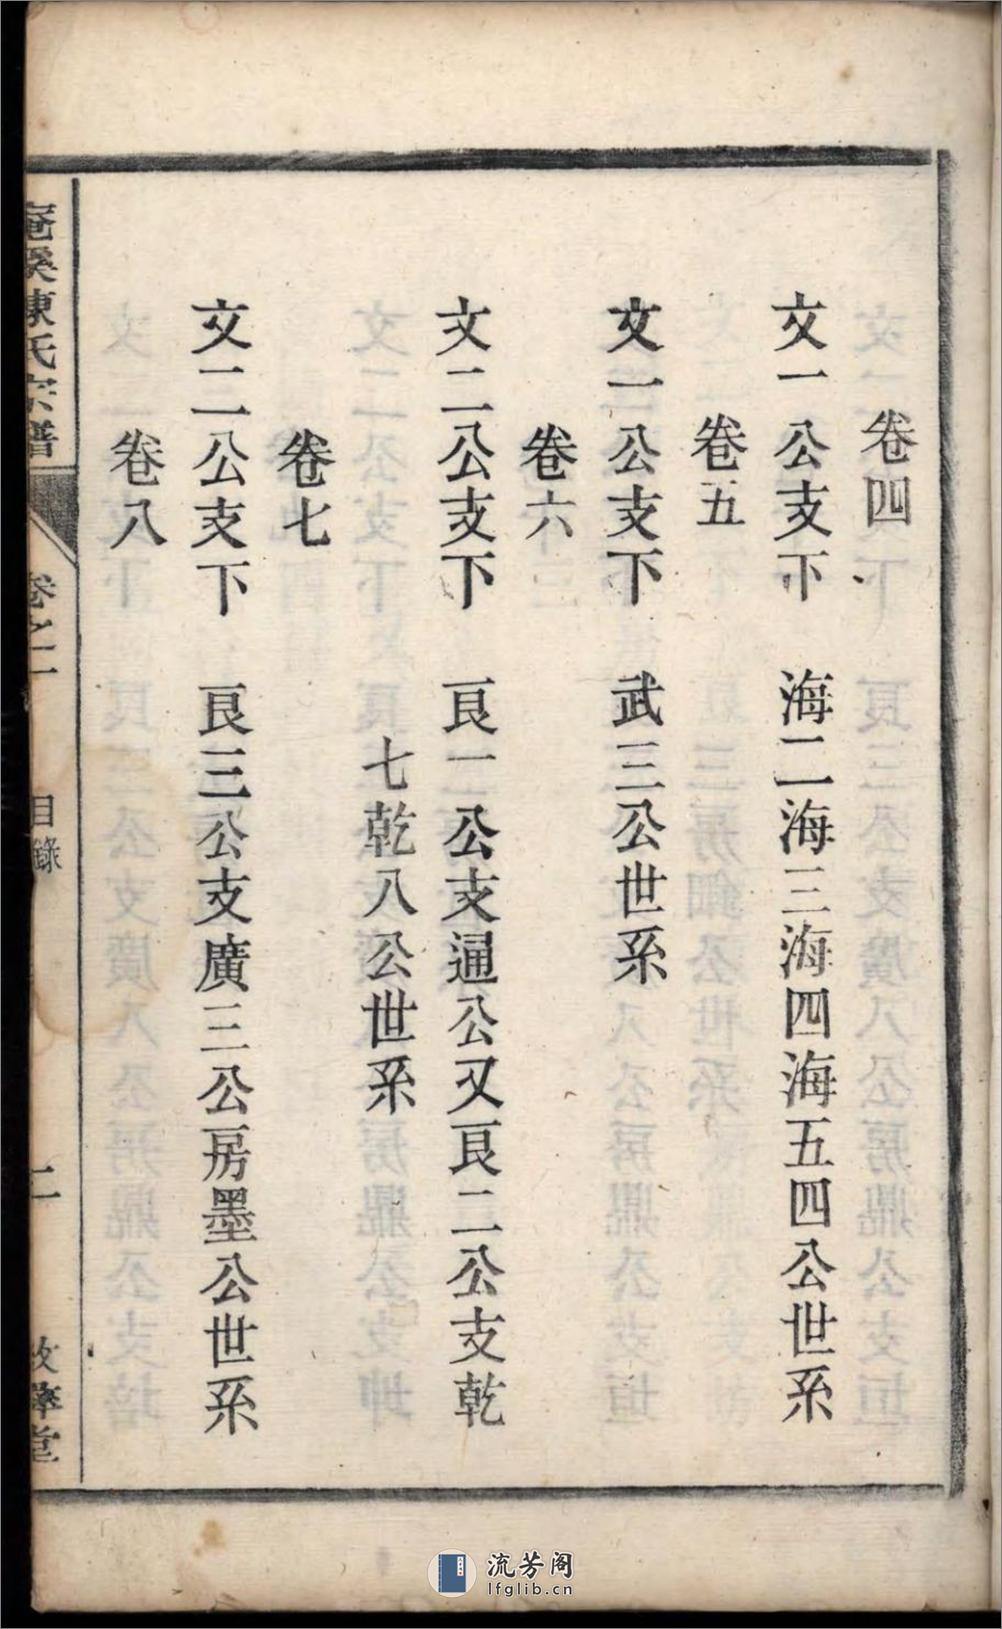 卷四
文一公支下　海二海三海四海五四公世系
卷五
文一公支下　武三公世系
卷六
文二公支下　艮一公支通公又艮二公支乾
七乾八公世系
卷七
文二公支下　艮三公支廣三公房墨公世系
卷八
溪陳氏宗譜
卷之二
目錄
二
堂
流芳阁
lfglib.cn